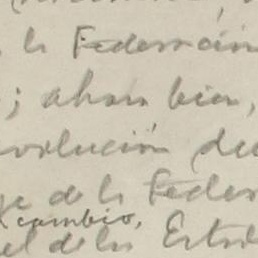 la Federación
; ahora bien,
evolución de
de la Feder
cambio,
el de los Estad